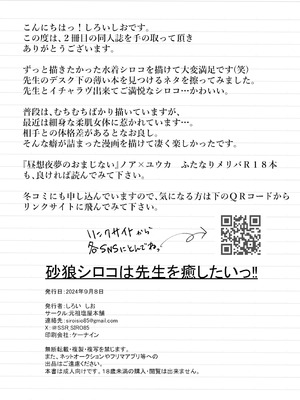 こんにちはっ！しろいしおです。
この度は、２冊目の同人誌を手の取って頂き
ありがとうございます。
ずっと描きたかった水着シロコを描けて大変満足です(笑)
先生のデスク下の薄い本を見つけるネタを擦ってみました。
先生とイチャラヴ出来てご満悦なシロコ…かわいい。
普段は、むちむちばかり描いていますが、
最近は細身な柔肌女体に惹かれています…。
相手との体格差があるとなお良し。
そんな癖が詰まった漫画を描けて凄く楽しかったです。
『昼想夜夢のおまじない』ノア×ユウカ　ふたなりメリバＲ１８本
も、良ければ読んでみて下さい。
冬コミにも申し込んでいますので、気になる方は下のＱＲコードから
リンクサイトに飛んでみて下さい。
リンクサイトから
各SNSにとんでね。
砂狼シロコは先生を癒したいっ!!
発行日：2024年9月8日
発行者：しろい しお
サークル 元祖塩屋本舗
連絡先：siroisio85@gmail.com
X：@SSR_SIRO85
印刷会社：ケーナイン
無断転載・複製・複写を禁じます。
また、ネットオークションやフリマアプリ等への
出品はご遠慮ください。
本書は成人向けです。18歳未満の購入・閲覧は出来ません。